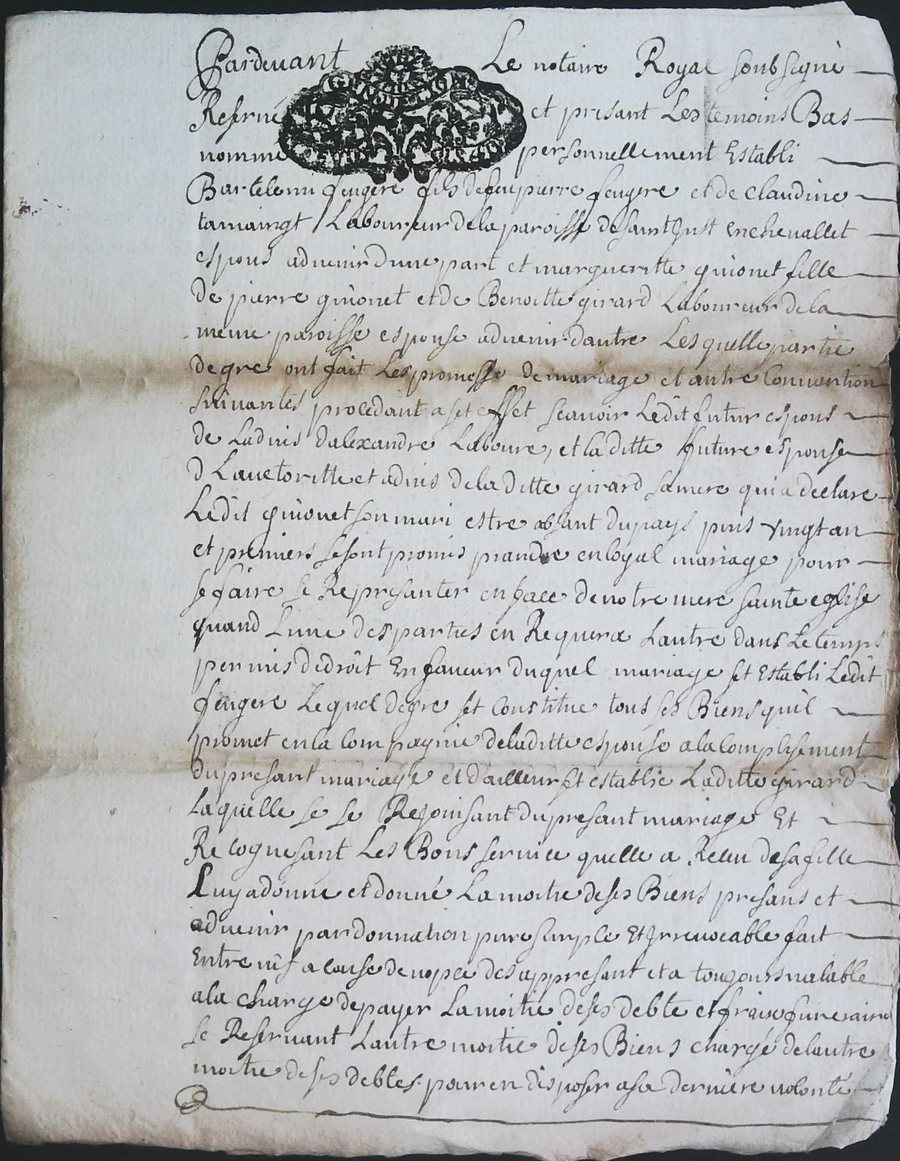 Pardevant Le notaire Royal soubsegné
Reservé et presant Les temoins Bas
nommé personnellement Establi
Bartelemi feugere fils defeu pierre feugere et de Claudine
tamaingt Laboureur dela paroisse de saint Just en chevallet
espous advenir dune part et margueritte guionet fille
de pierre guionet et de Benoitte girard Laboureur dela
meme paroisse espouse advenir dautre Lesquelle partie
de gre ont fait Les promesse de mariage et autre Convantion
suivantes procedant a set effet scavoir Ledit futur espous
de Ladvis dalexandre Laboure, et laditte future espouse
d Lauctoritte et advis dela ditte girard sa mere qui a declare
Ledit guionet son mari estre absant du pays puis vingt an
et premiers se sont promis prandre en loyal mariage pour
se faire se Representer en face de notre mere sainte eglise
quand Lune des parties en Requera Lautre dans Le temps
permis de droit En faveur duquel mariage set Establi Ledit
feugere Lequel de gre set Constitue tous ses Biens quil
promet en la Compagnie de laditte espouse a la Complisement
du presant mariage et dailleur set establie Laditte girard
Laquelle se se Rejouisant du presant mariage Et
Recognesant Les Bons service quelle a Receu de sa fille
Luy a donné et donne La moitie de ses Biens presans et
advenir par donnation pure simple Et Irrevocable fait
Entre vifs a Cause de nopce des appresant et a tousjours valable
a la charge de payer La moitie de ses debte et fraise funeraire
se Reservant Lautre moitie de ses Biens chargé de lautre
moitie de ses debtes pour en disposer a sa derniere volonté